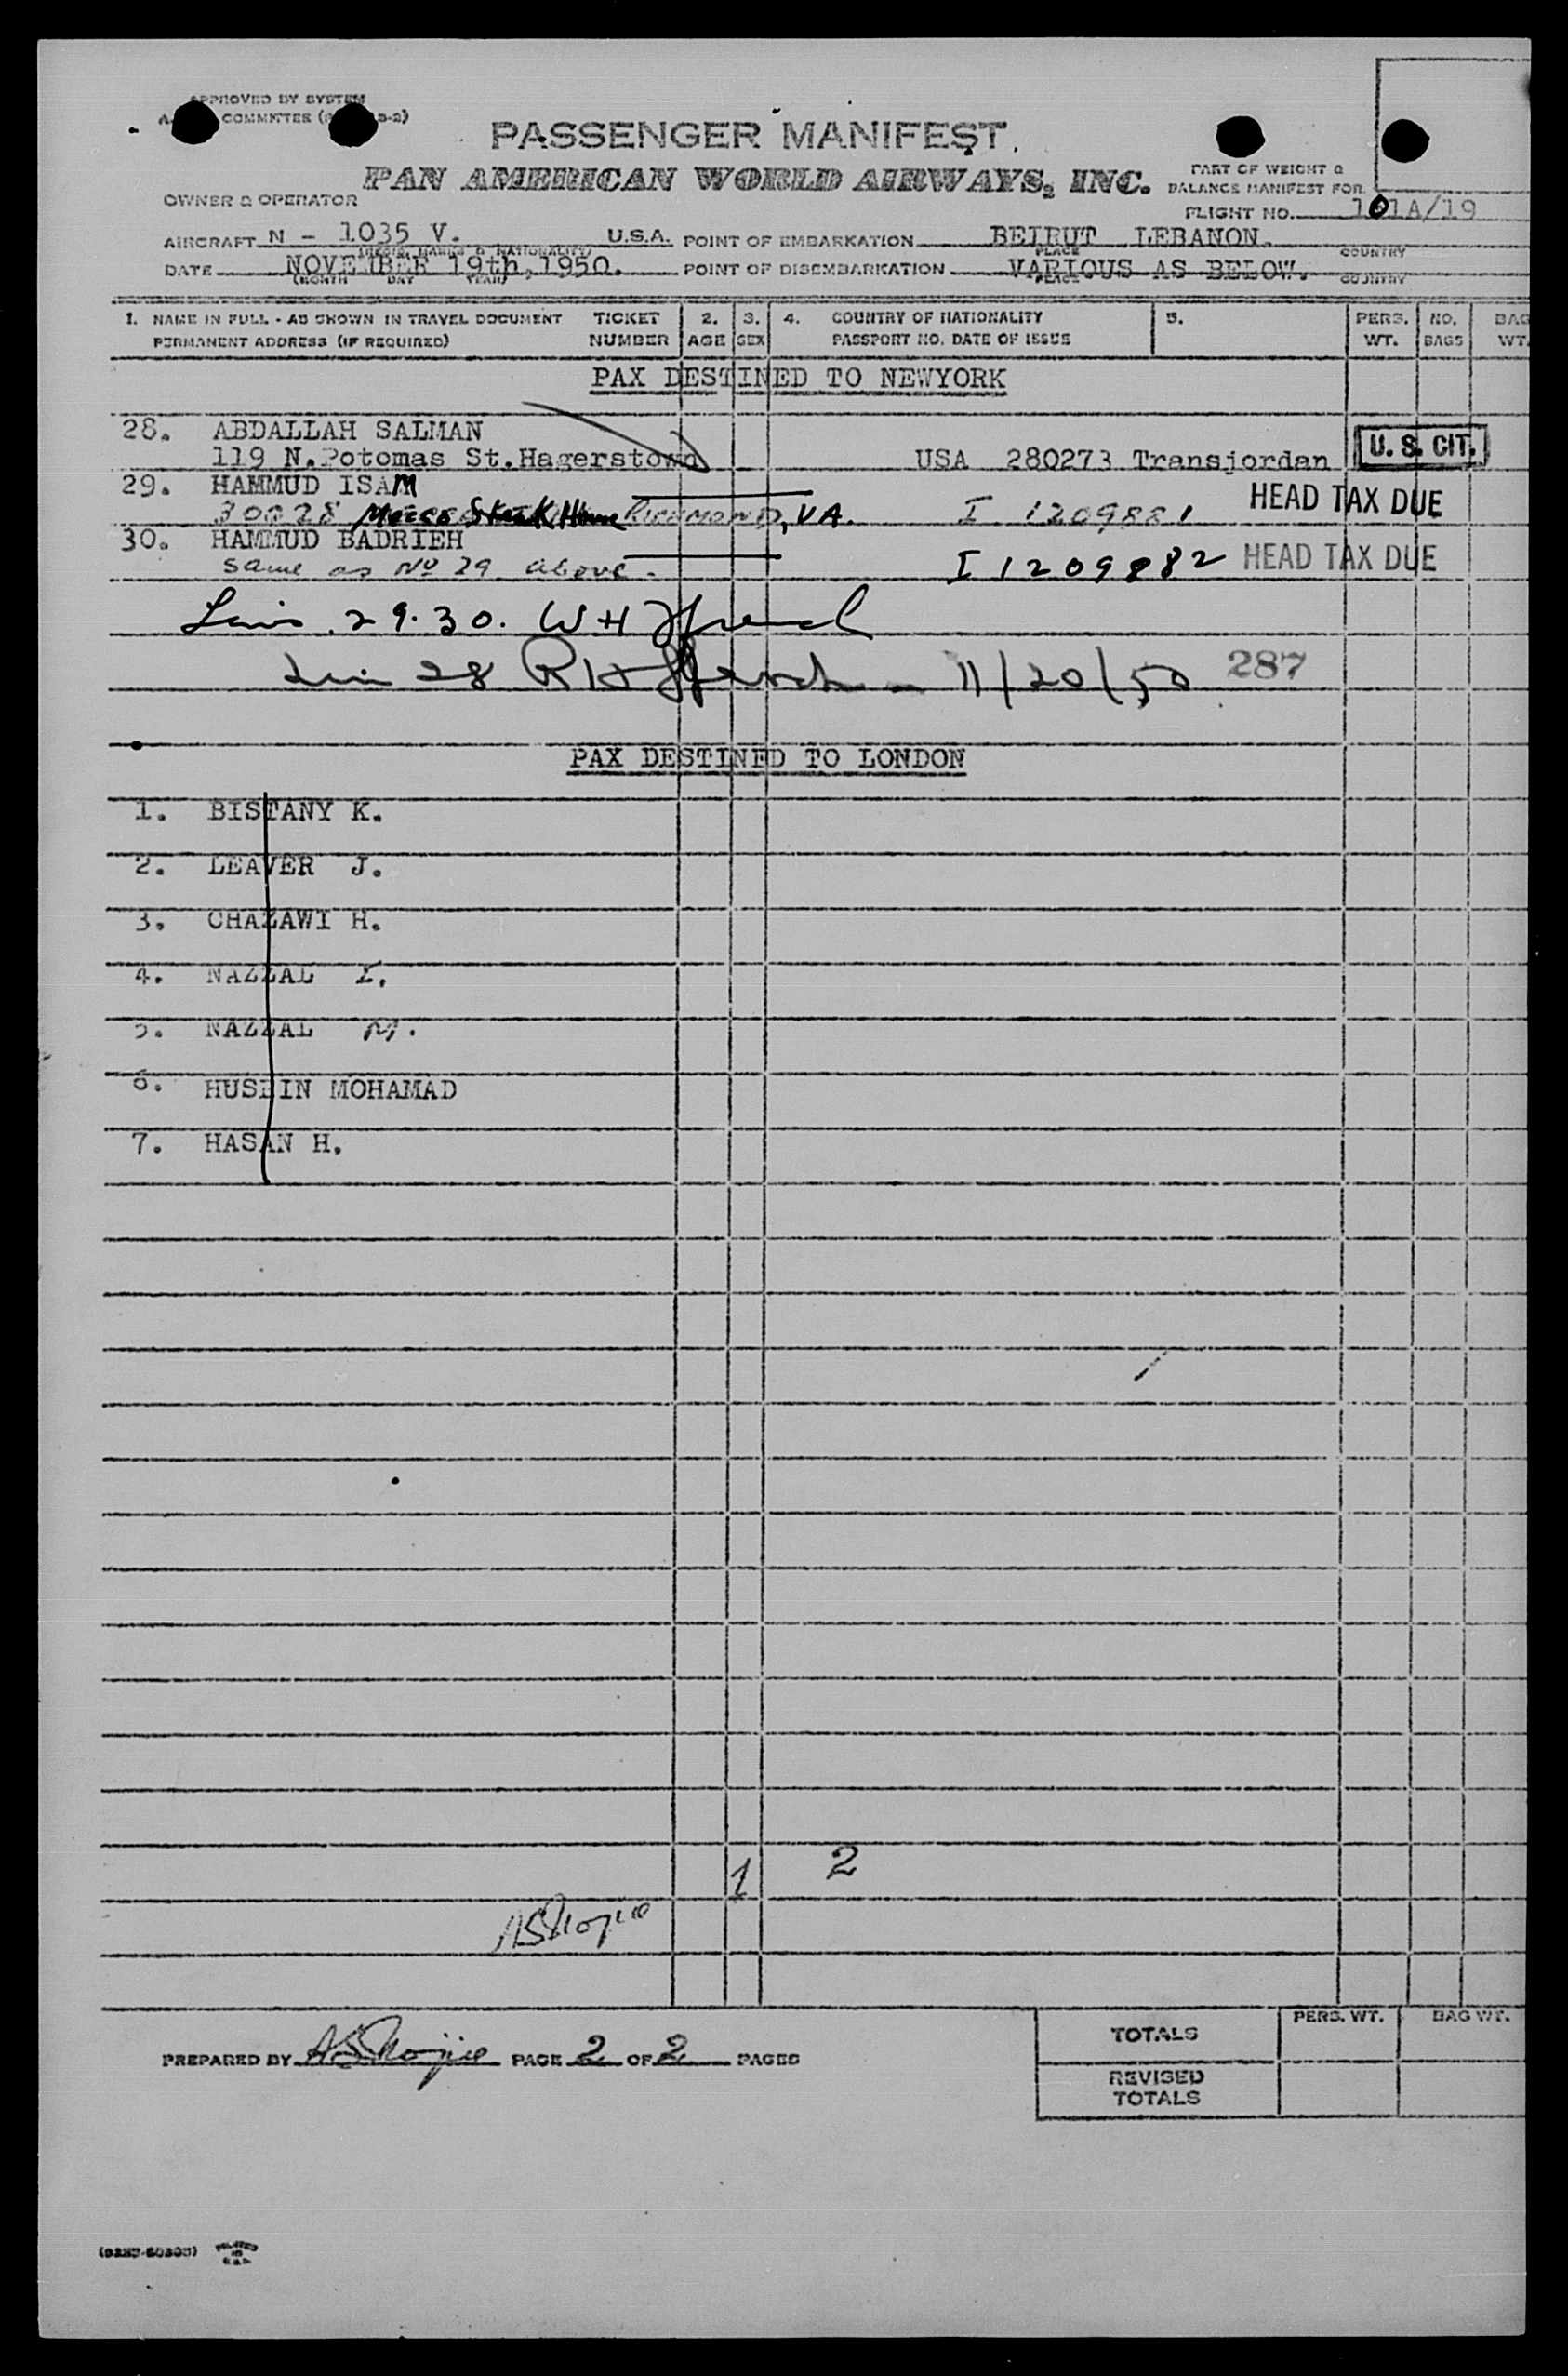 APPROVED BY SYSTEM
COMMITTEE
PASSENGER MANIFEST
PAN AMERICAN WORLD AIRWAYS, INC.
PART OF WEIGHT &
BALANCE MANIFEST FOR
OWNER & OPERATOR
FLIGHT NO. 101A/19
AIRCRAFT N - 1035 V. U.S.A. POINT OF EMBARKATION BEIRUT LEBANON.
PLACE COUNTRY
DATE NOVEMBER 19th, 1950. POINT OF DISEMBARKATION VARIOUS AS BELOW.
(MONTH DAY YEAR) PLACE COUNTRY
1. NAME IN FULL - AS SHOWN IN TRAVEL DOCUMENT TICKET 2. 3. 4. COUNTRY OF NATIONALITY 5. PERS. NO. BAG
PERMANENT ADDRESS (IF REQUIRED) NUMBER AGE SEX PASSPORT NO. DATE OF ISSUE WT. BAGS WT.
PAX DESTINED TO NEWYORK
28. ABDALLAH SALMAN
119 N.Potomas St.Hagerstown USA 280273 Transjordan U. S. CIT.
29. HAMMUD ISAM HEAD TAX DUE
Steak House RICHMOND, VA. I 1209881
30. HAMMUD BADRIEH
same as No 29 above. I 1209882 HEAD TAX DUE
29.30. WH
28 11/20/50 287
PAX DESTINED TO LONDON
1. BISTANY K.
2. LEAVER J.
3. CHAZAWI H.
4. NAZZAL I.
5. NAZZAL M.
6. HUSEIN MOHAMAD
7. HASAN H.
1 2
TOTALS PERS. WT. BAG WT.
PREPARED BY PAGE 2 OF 2 PAGES
REVISED
TOTALS